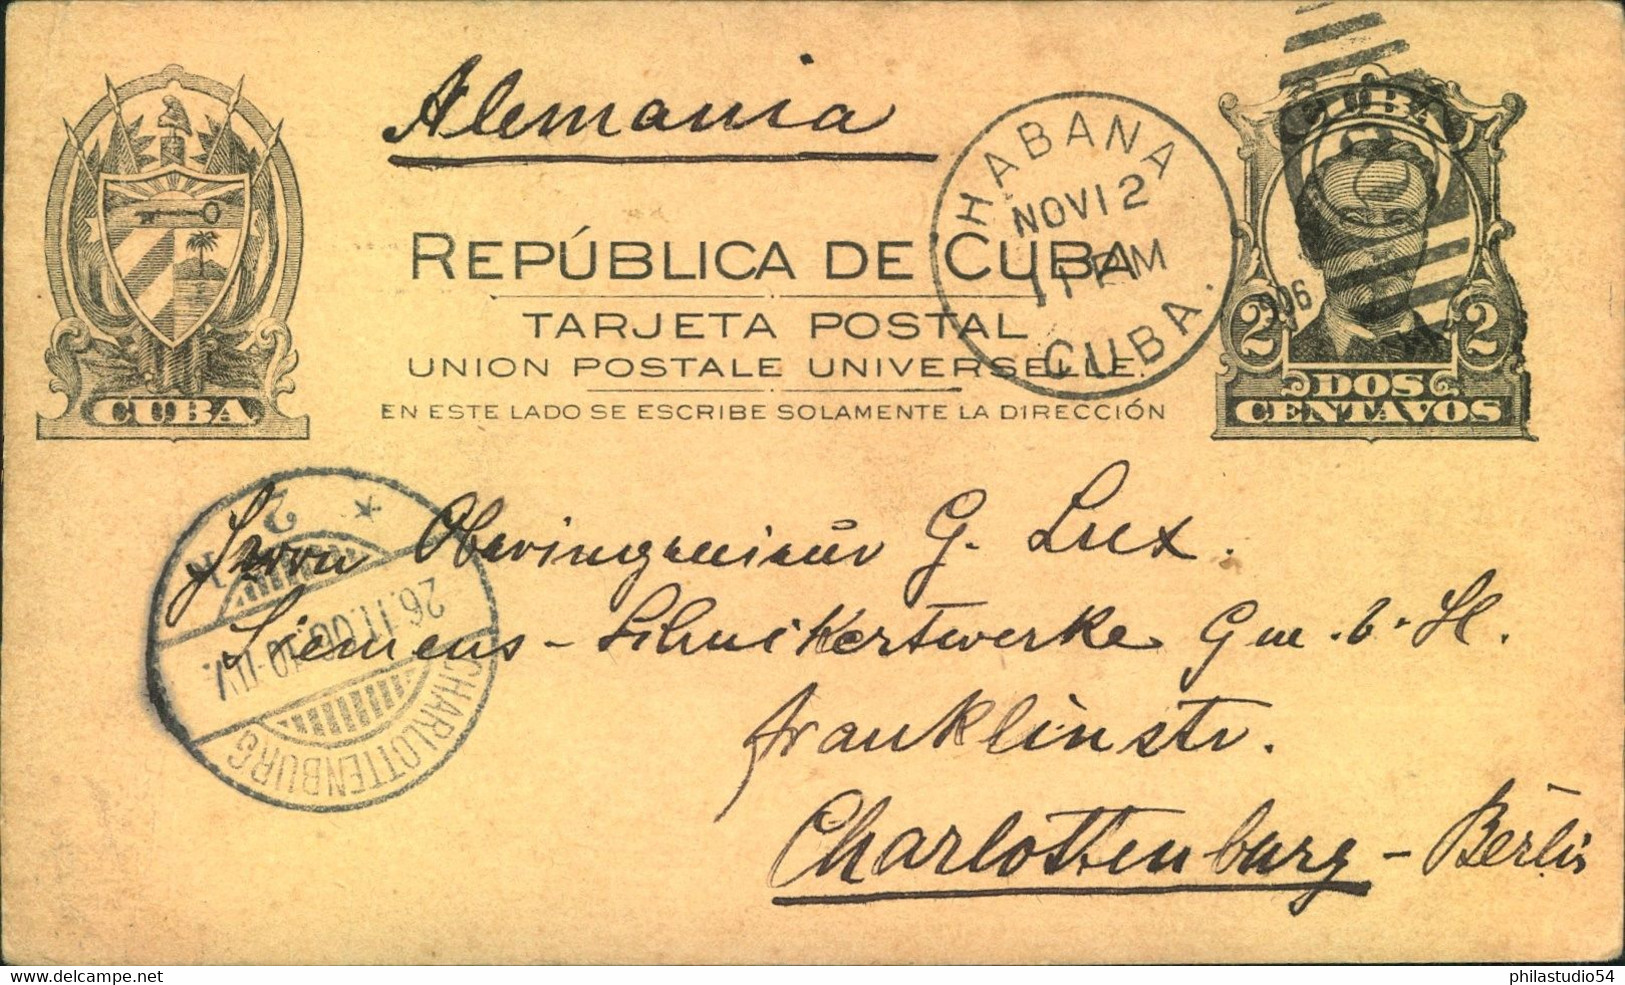 Alemania
HABANA
NOV 12
11 PM
CUBA.
1906
CUBA
2 2
DOS
CENTAVOS
CUBA
REPÚBLICA DE CUBA
TARJETA POSTAL
UNION POSTALE UNIVERSELLE.
EN ESTE LADO SE ESCRIBE SOLAMENTE LA DIRECCIÓN
Herrn Oberingenieur G. Lux.
Siemens-Schuckertwerke G m. b. H.
Franklinstr.
Charlottenburg - Berlin
* 2
26.11.06. 10-11V.
CHARLOTTENBURG
philastudio54
www.delcampe.net